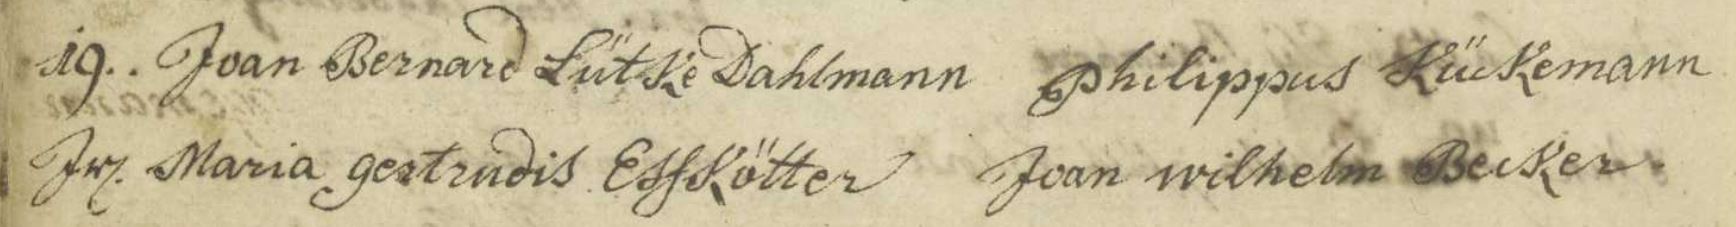 19.. Joan Bernard Lütke Dahlmann Philippus Kückemann
Jfr. Maria gertrudis Esskötter Joan wilhelm Becker.